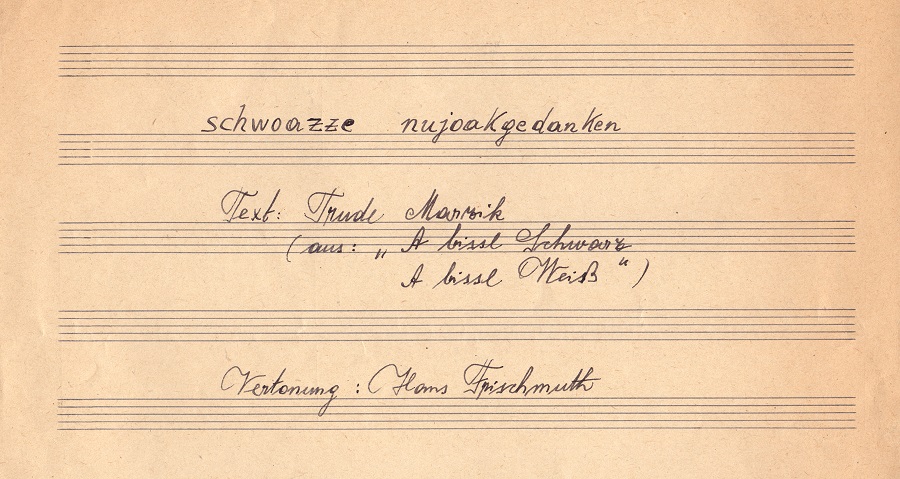 schwoazze nujoakgedanken
Text: Trude Marzik
(aus: „A bissl Schwarz
A bissl Weiß“)
Vertonung: Hans Frischmuth